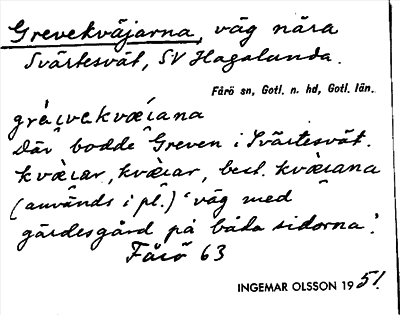 Grevekväjarna, väg nära
Svärtesvät, SV Hagalunda.
Fårö sn, Gotl. n. hd, Gotl. län.
grèi̯vekvǽi̯ana
Där bodde Greven i Svärtesvät.
kvæ̀i̯ar, kvæ̀i̯ar, best. kvæ̀i̯ana
(används i pl.) 'väg med
gärdesgård på båda sidorna'.
Fårö 63
INGEMAR OLSSON 1951.